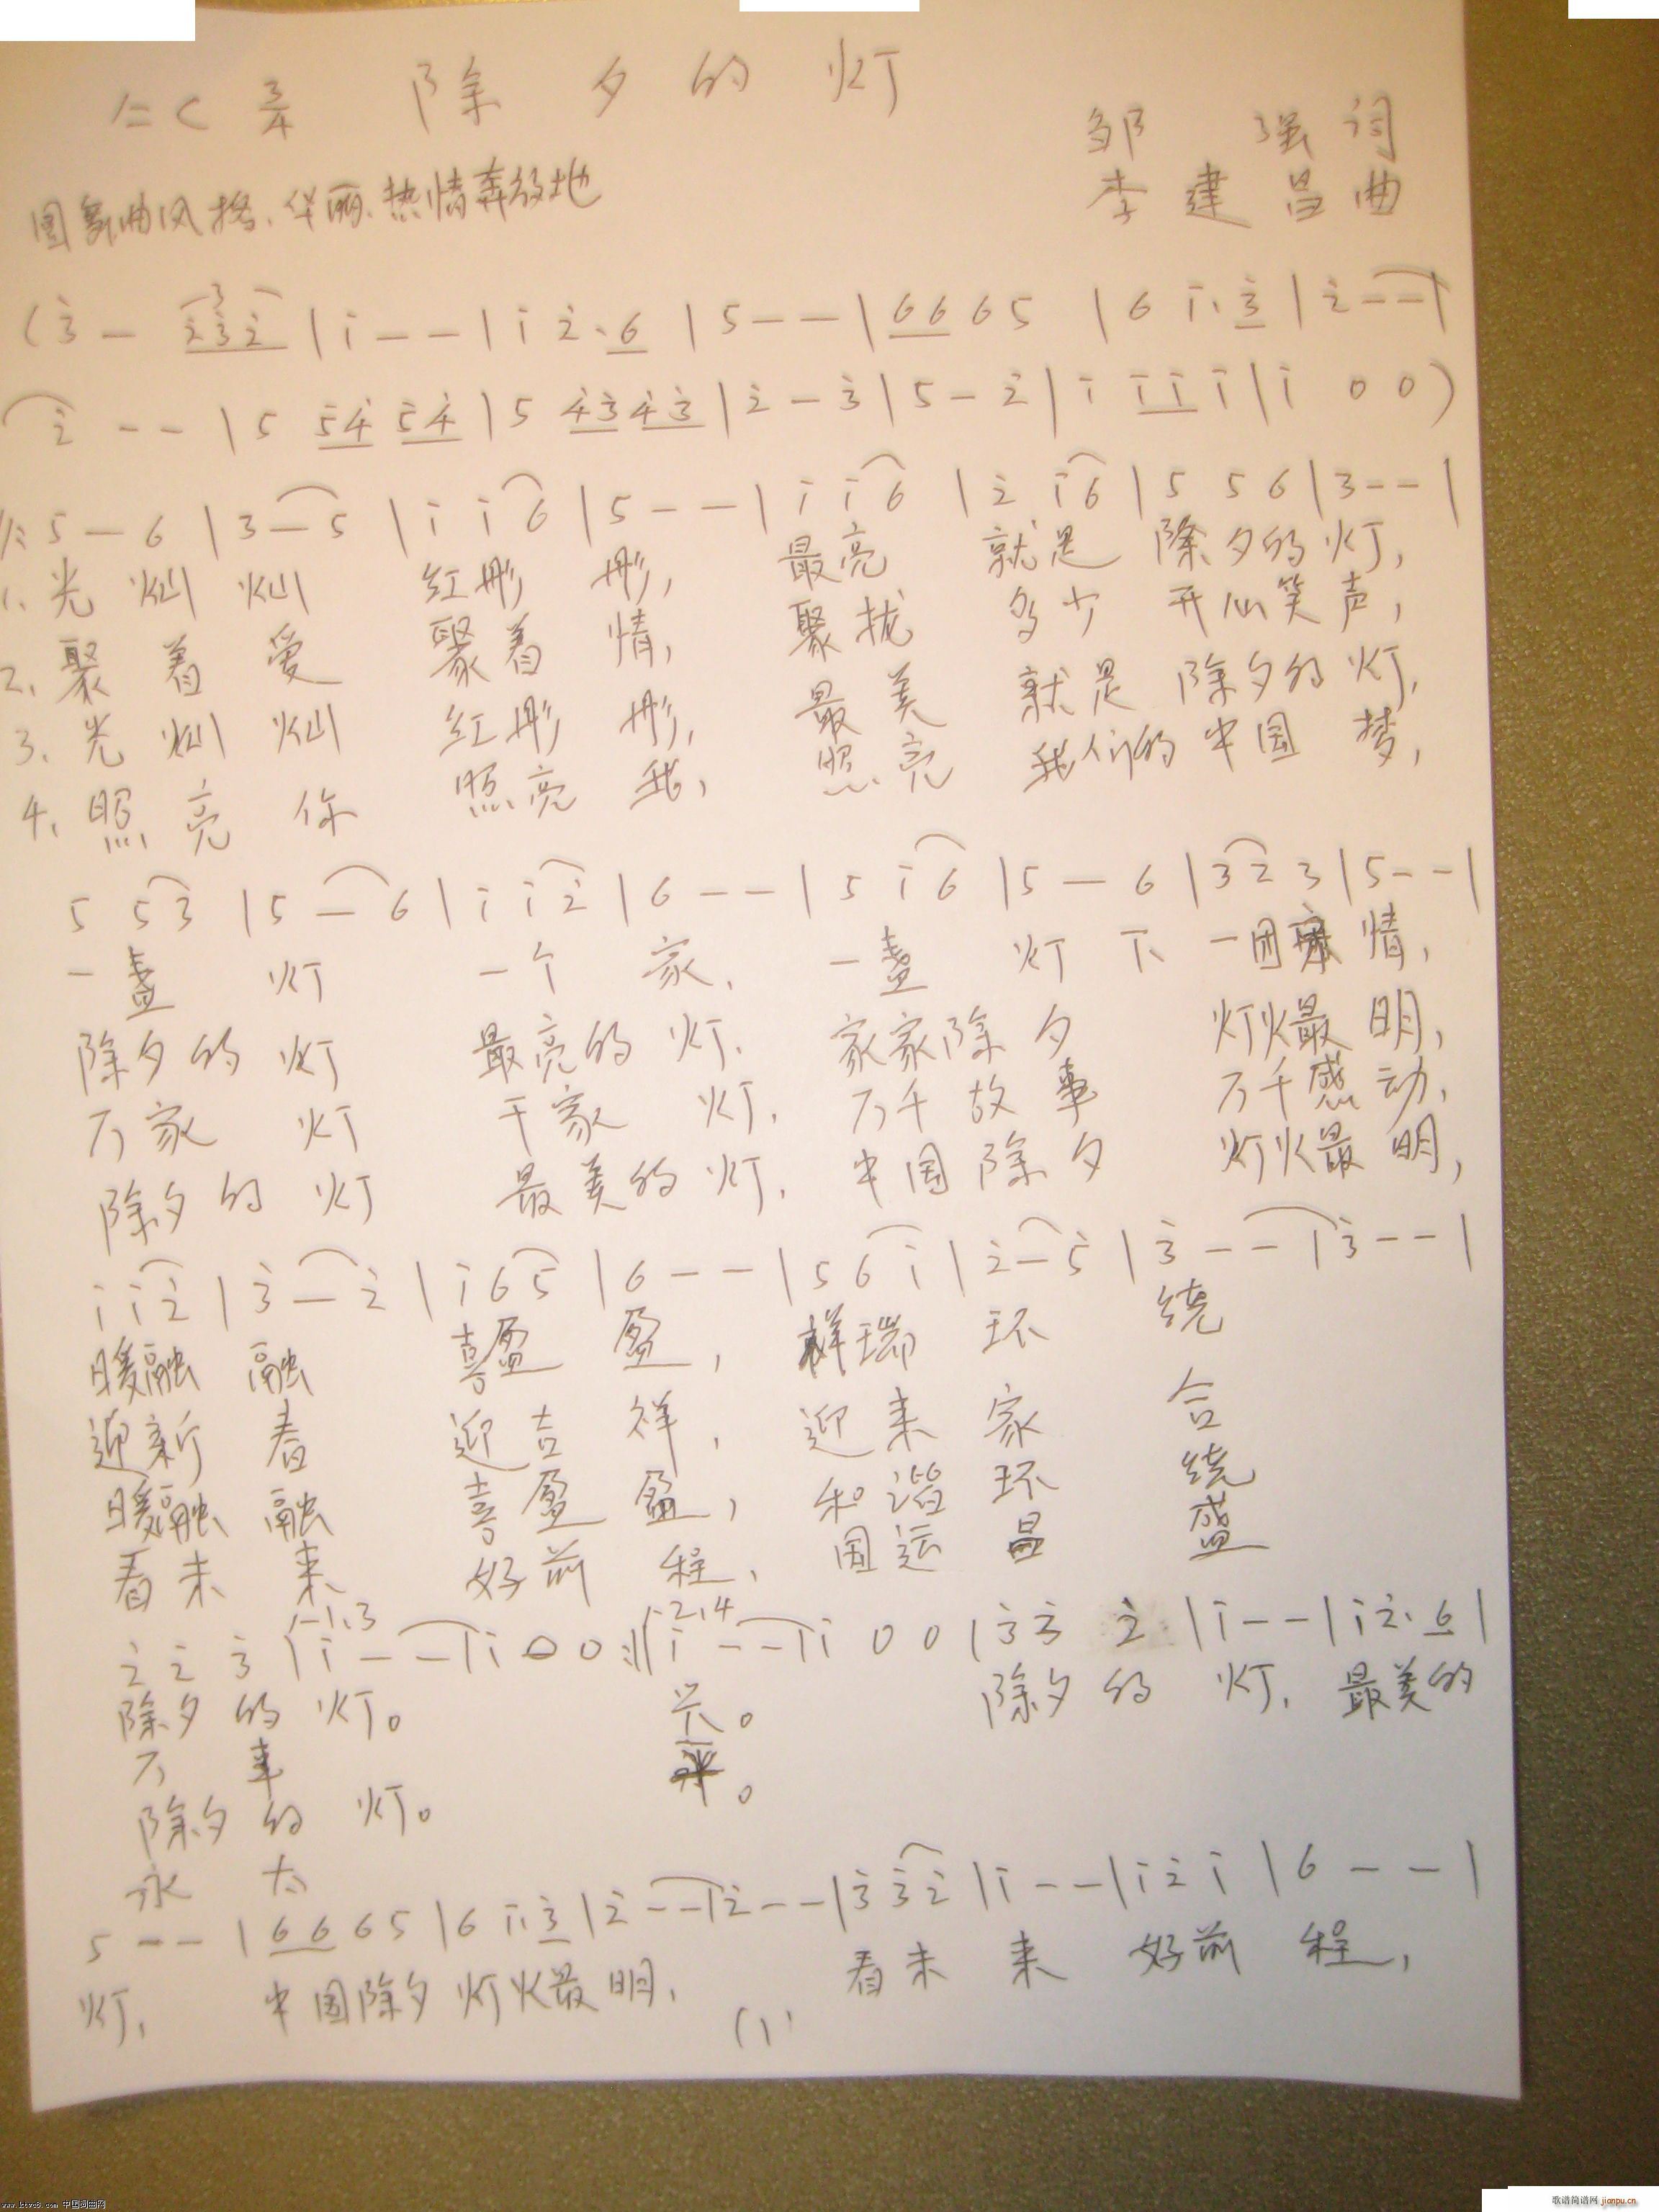 1=C 3/4 除夕的灯
邹强词
圆舞曲风格、华丽、热情奔放地
李建昌曲
(3̇ - 2̇3̇2̇ | i - - | i 2̇. 6 | 5 - - | 6 6 6 5 | 6 i. 3̇ | 2̇ - - |
2̇ - - | 5 5̇4̇ 5̇4̇ | 5 4̇3̇ 4̇3̇ | 2̇ - 3̇ | 5 - 2̇ | i i i i | i 0 0)
5 - 6 | 3 - 5 | i i 6 | 5 - - | i i 6 | 2̇ i 6 | 5 5 6 | 3 - - |
1、光灿灿 红彤彤, 最亮 就是 除夕的灯,
2、聚着爱 聚着情, 聚拢 多少 开心笑声,
3、光灿灿 红彤彤, 最美 就是 除夕的灯,
4、照亮你 照亮我, 照亮 我们的中国梦,
5 5 3 | 5 - 6 | i i 2̇ | 6 - - | 5 i 6 | 5 - 6 | 3 2 3 | 5 - - |
一盏灯 一个家、 一盏灯下 一团 情,
除夕的灯 最亮的灯、 家家除夕 灯火最明,
万家灯 千家灯、 万千故事 万千感动、
除夕的灯 最美的灯、 中国除夕 灯火最明,
i i 2̇ | 3̇ - 2̇ | i 6 5 | 6 - - | 5 6 i | 2̇ - 5 | 3̇ - - | 3̇ - - |
暖融融 喜盈盈, 祥瑞环绕
迎新春 迎吉祥, 迎来家合
暖融融 喜盈盈, 和谐环绕
看未来 好前程、 国运昌盛
1、3 2、4
2̇ 2̇ 3̇ | i - - | i 0 0 :|| i - - | i 0 0 | 3̇ 3̇ 2̇ | i - - | i 2̇. 6 |
除夕的灯。 兴。 除夕的灯、最美的
万事 平。
除夕的灯。
永太
5 - - | 6 6 6 5 | 6 i. 3̇ | 2̇ - - | 2̇ - - | 3̇ 3̇ 2̇ | i - - | i 2̇ i | 6 - - |
灯、 中国除夕灯火最明、 看未来 好前程,
(1)
www.ktvc8.com 中国词曲网
歌谱简谱网 jianpu.cn